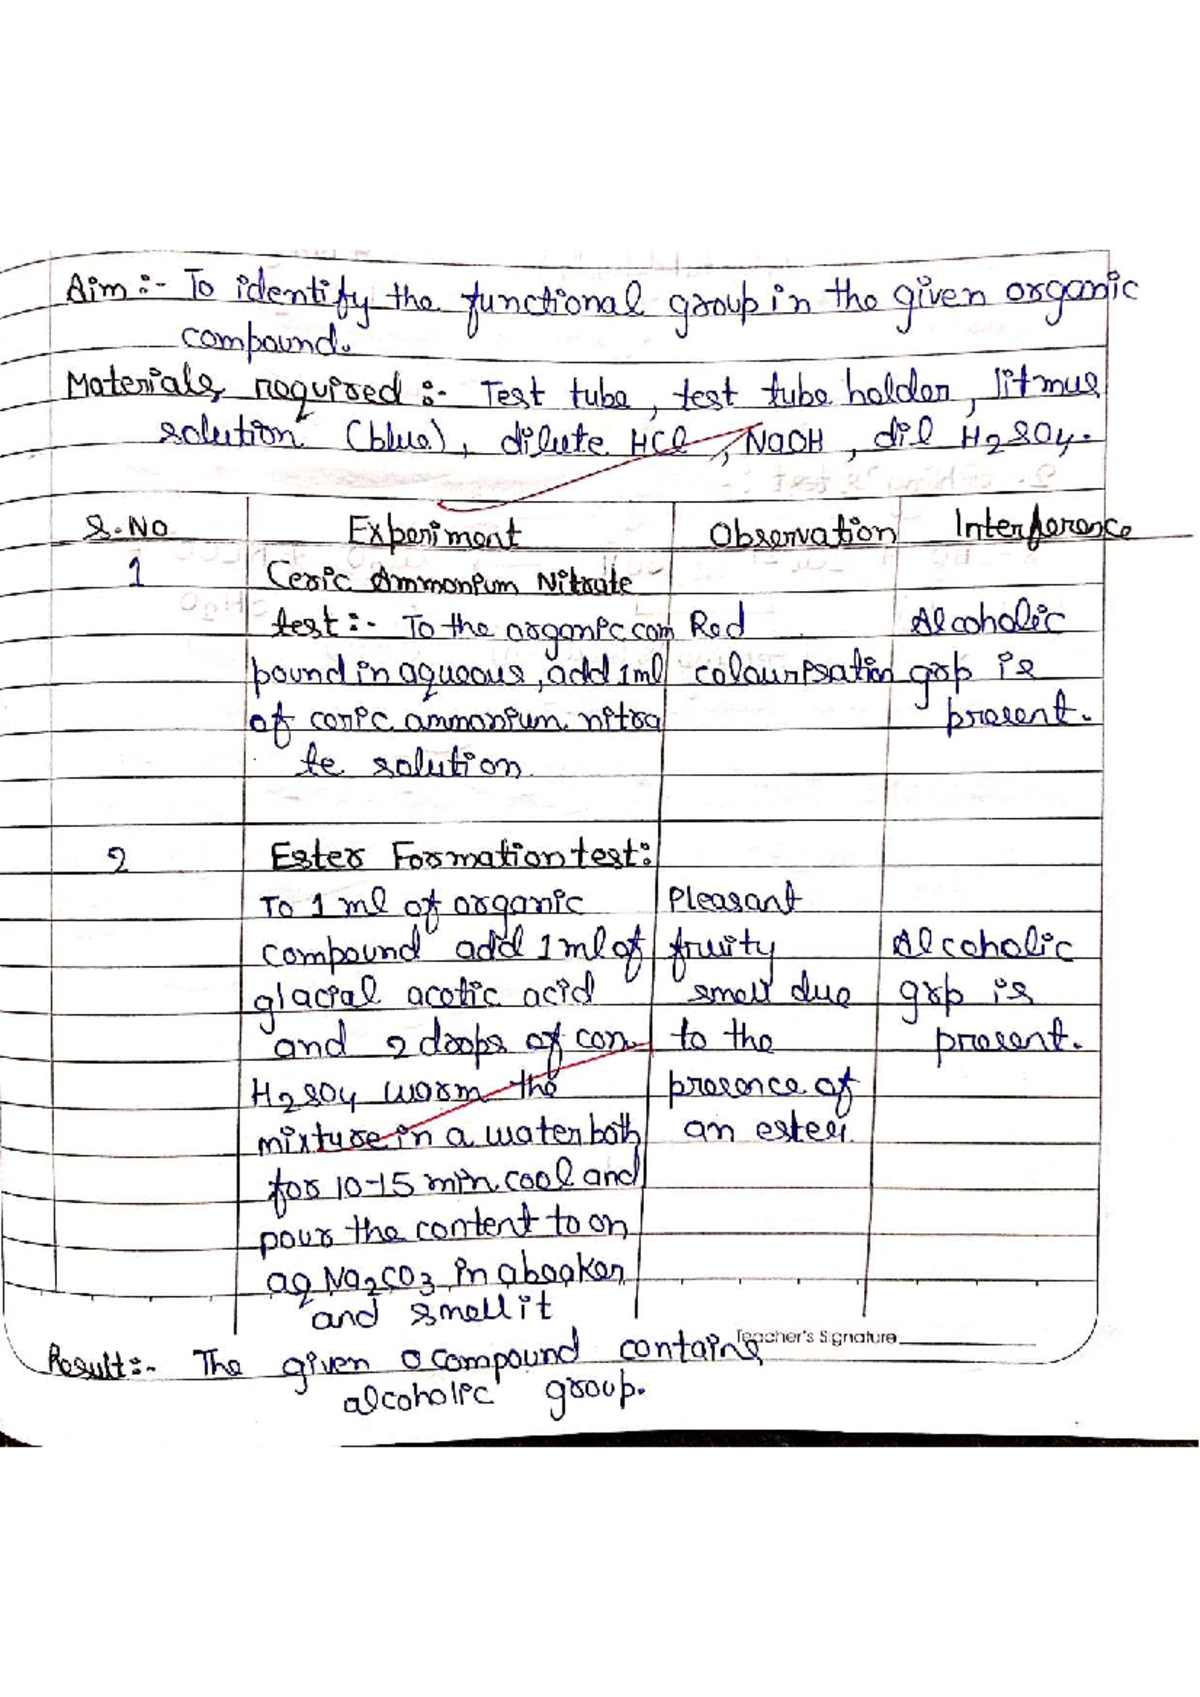 Aim :- To identify the functional group in the given organic
compound.
Materials required :- Test tube, test tube holder, litmus
solution (blue), dilute HCl, NaOH, dil H2SO4.
S.No Experiment Observation Interference
1 Ceric Ammonium Nitrate
test :- To the organic com Red Alcoholic
pound in aqueous, add 1ml colourisation grp is
of ceric ammonium nitra present.
te solution.
2 Ester Formation test:
To 1 ml of organic Pleasant
compound add 1 ml of fruity Alcoholic
glacial acetic acid smell due grp is
and 2 drops of con. to the present.
H2SO4 warm the presence of
mixture in a water bath an ester.
for 10-15 min. cool and
pour the content to an
aq Na2CO3 in a beaker
and smell it
Teacher's Signature
Result:- The given o compound contains
alcoholic group.